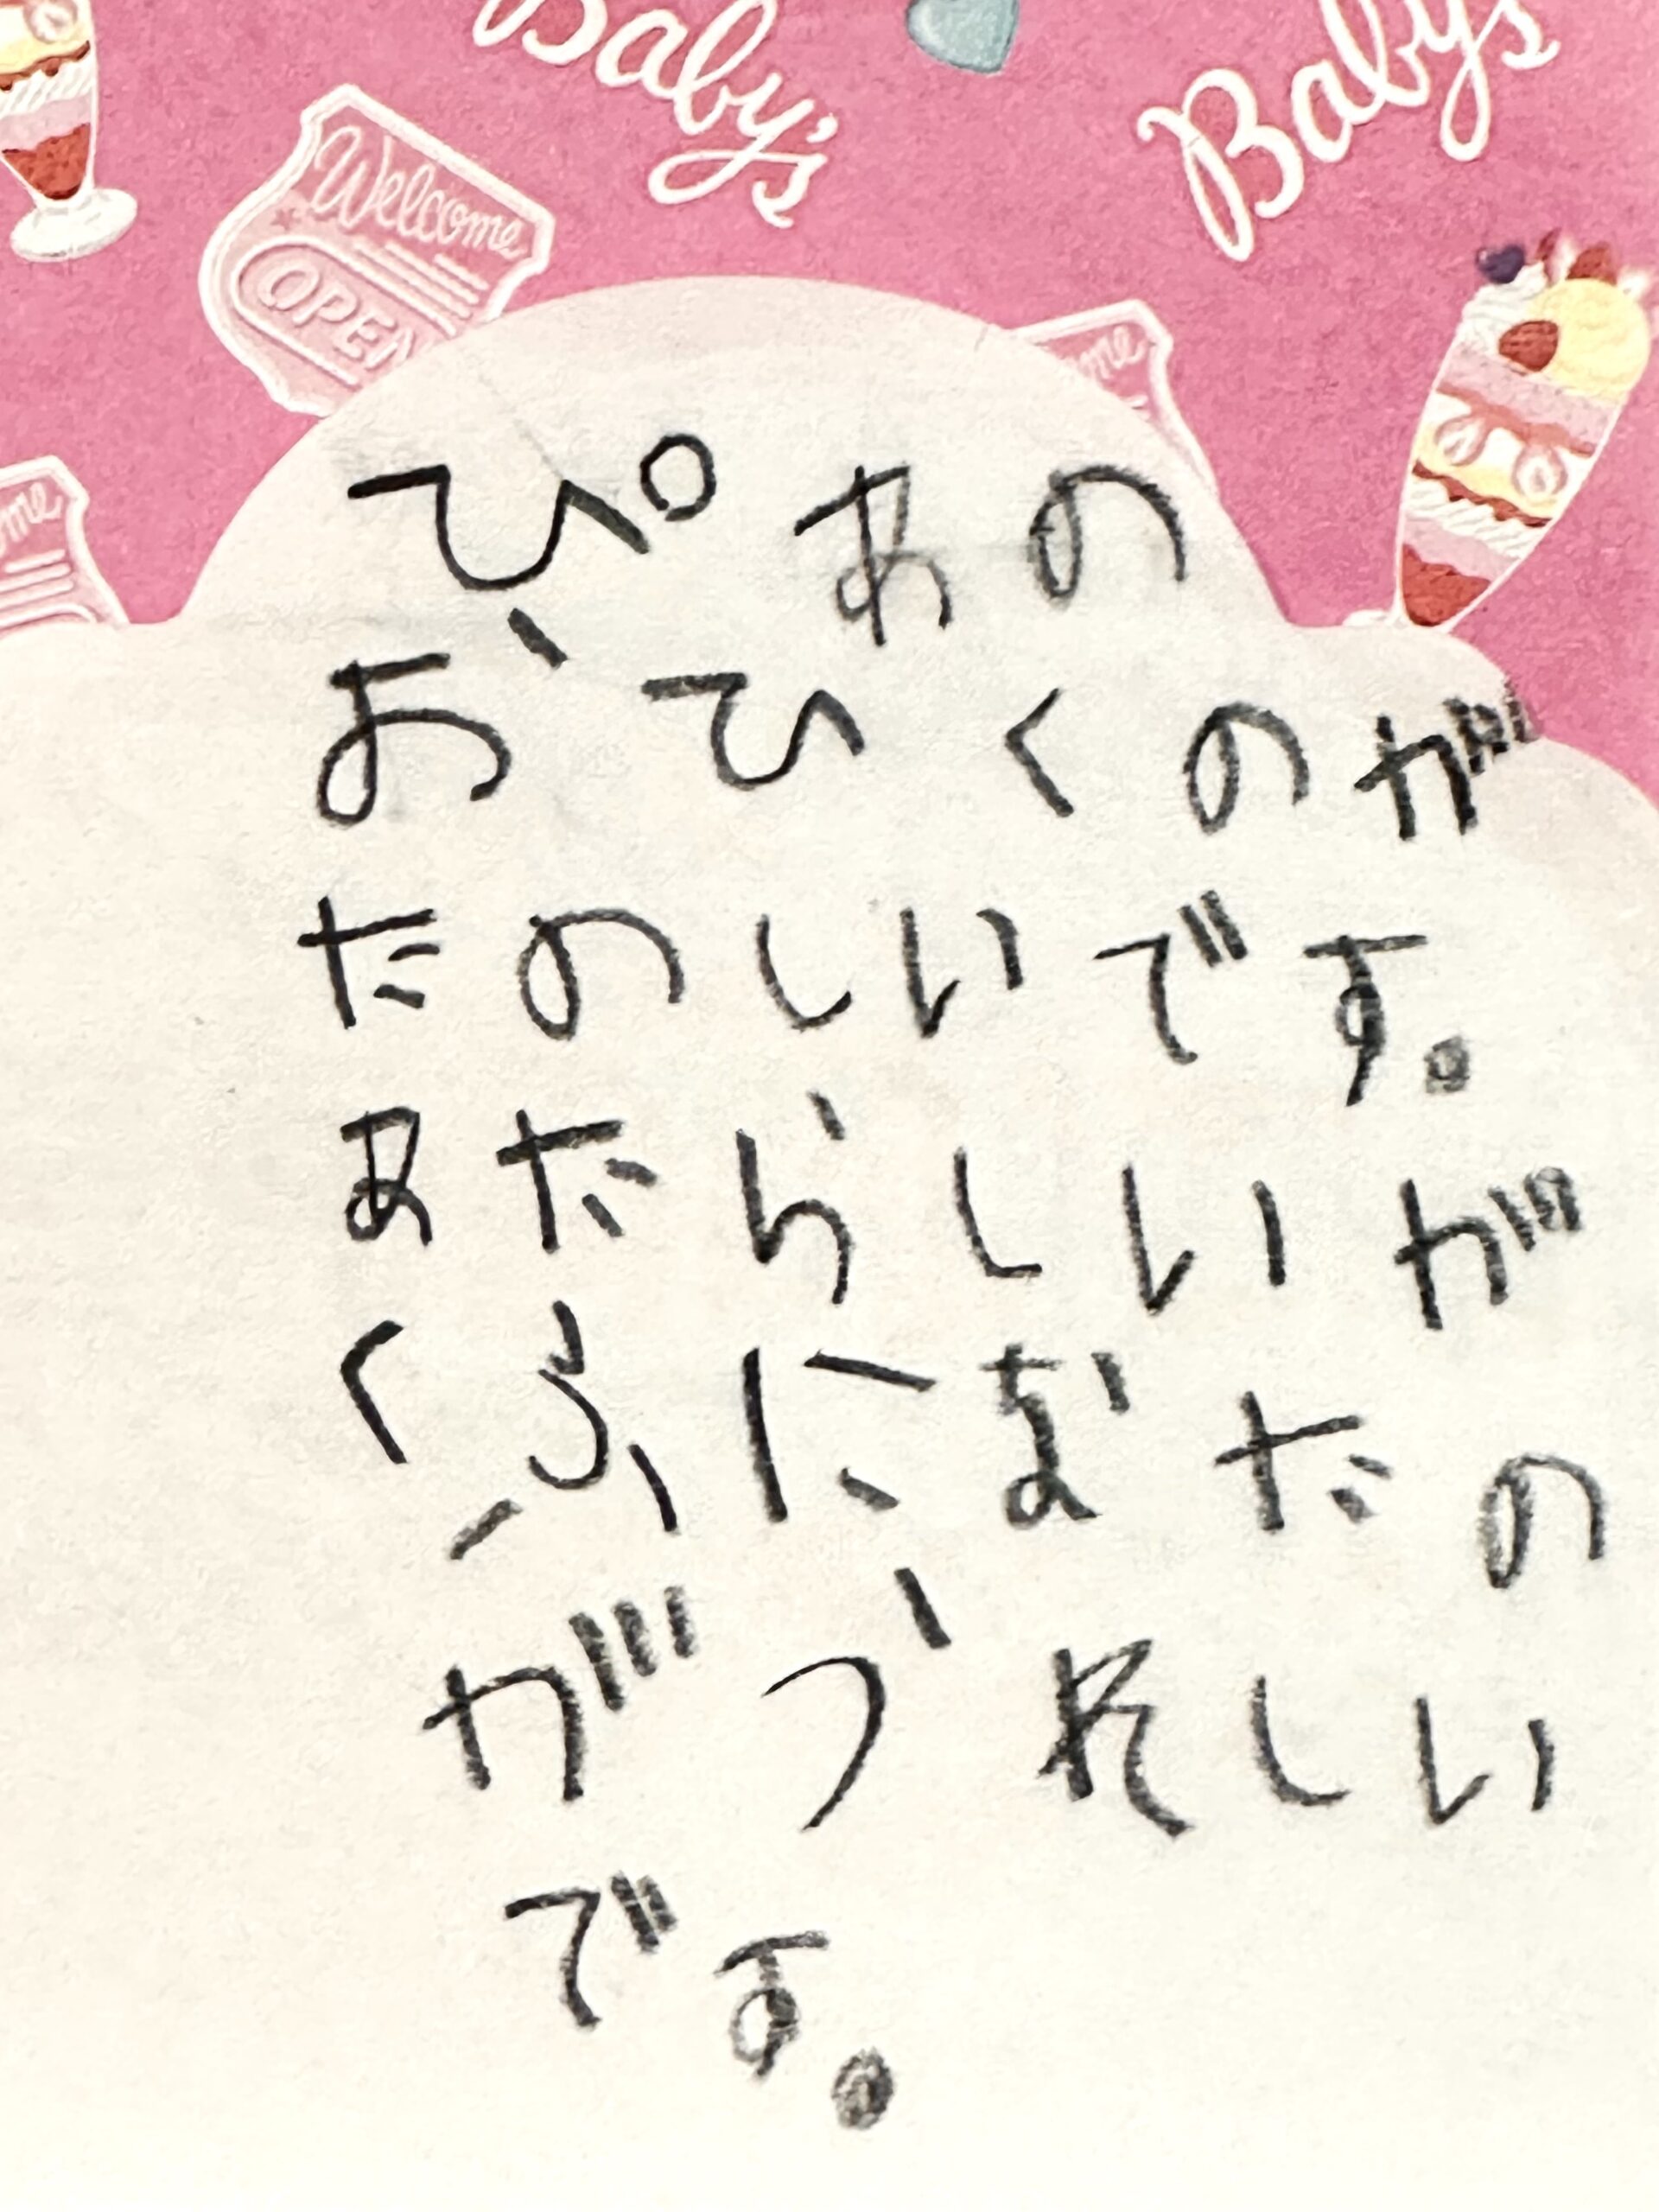 Baby's
Baby's
Welcome
OPEN
ぴあの
おひくのが
たのしいです。
あたらしいが
くふになたの
がうれしい
です。